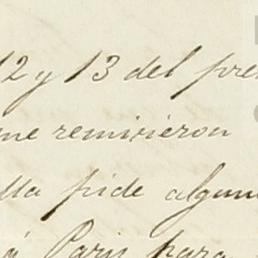 12 y 13 del pre
me remitieron
lla pide algun
á Paris para